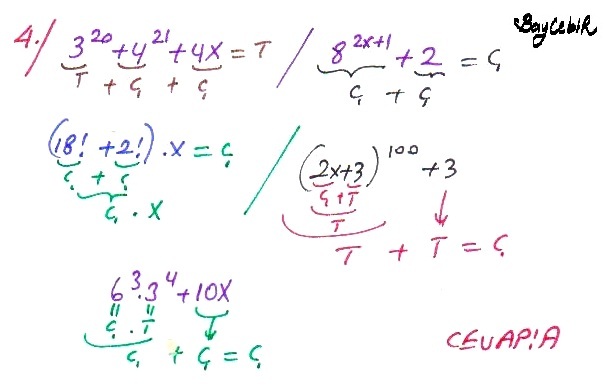 BayCebiR
4./ 3^20 + 4^21 + 4X = T / 8^(2x+1) + 2 = Ç
T + Ç + Ç
Ç + Ç
(18! + 2!) . X = Ç / (2x+3)^100 + 3
Ç + Ç
Ç + T
Ç . X
T
T + T = Ç
6^3 . 3^4 + 10X
Ç . T
Ç + Ç = Ç
CEVAP: A